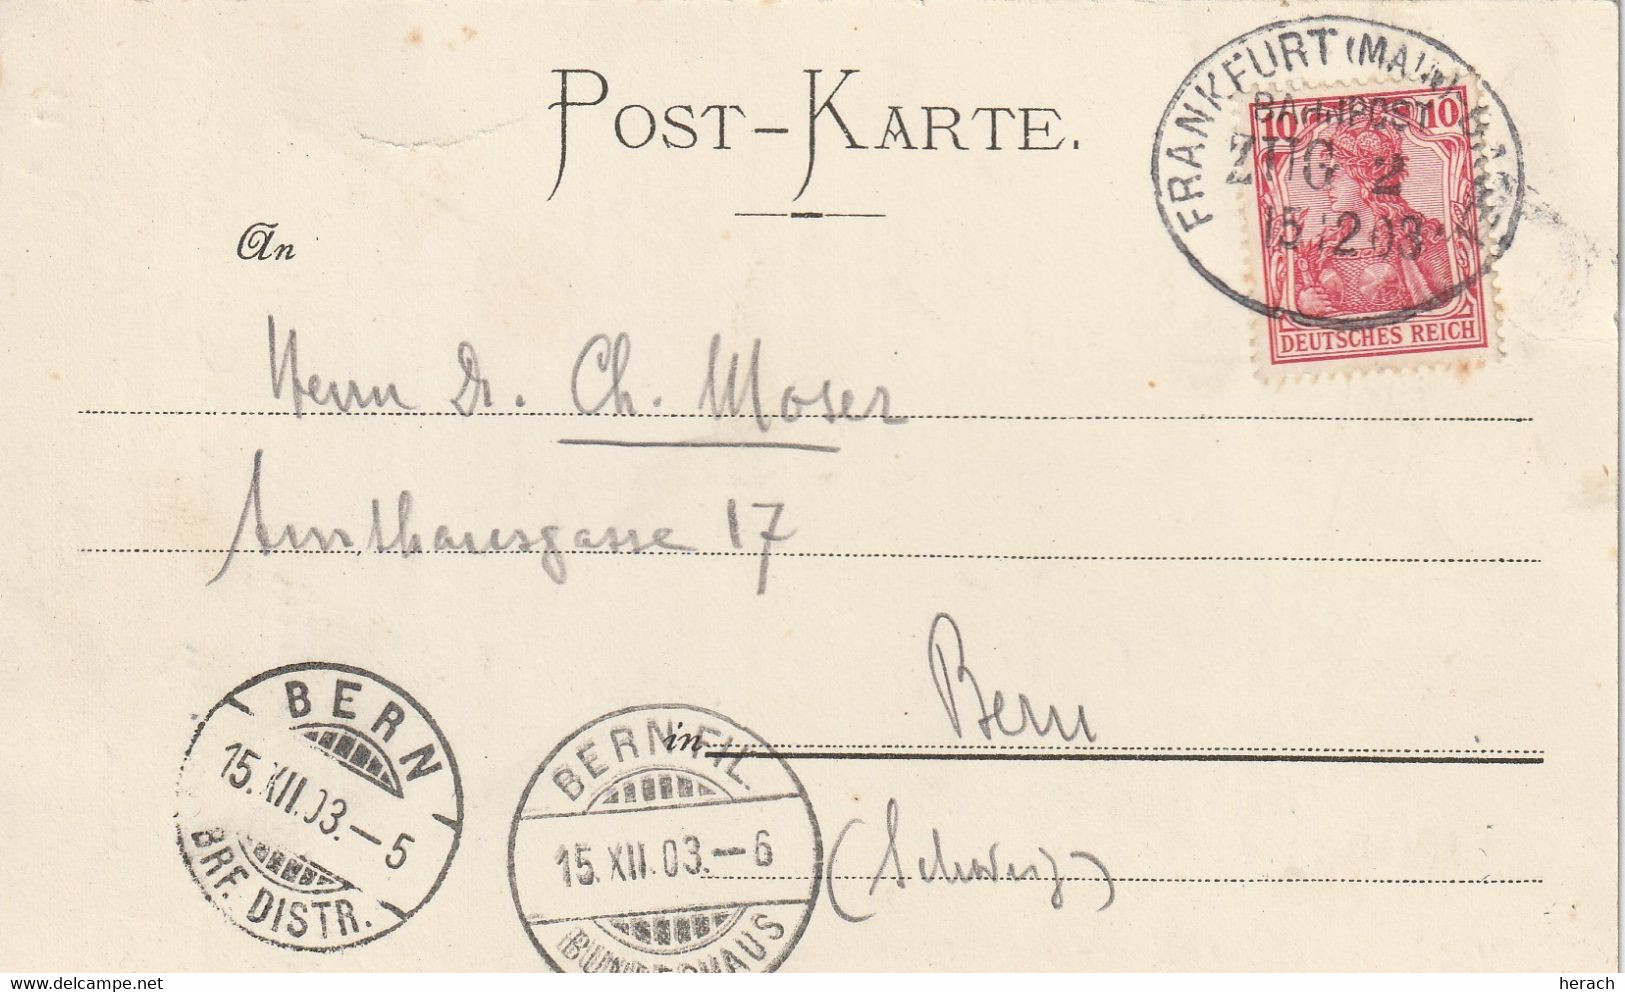 POST-KARTE.
FRANKFURT (MAIN)
BAHNPOST
ZUG 2
15 12 03
10 10
DEUTSCHES REICH
An
Herrn Dr. Ch. Moser
Amthausgasse 17
in Bern
(Schweiz)
BERN
15.XII.03.–5
BRF. DISTR.
BERN FIL.
15.XII.03.–6
BUNDESHAUS
www.delcampe.net
herach